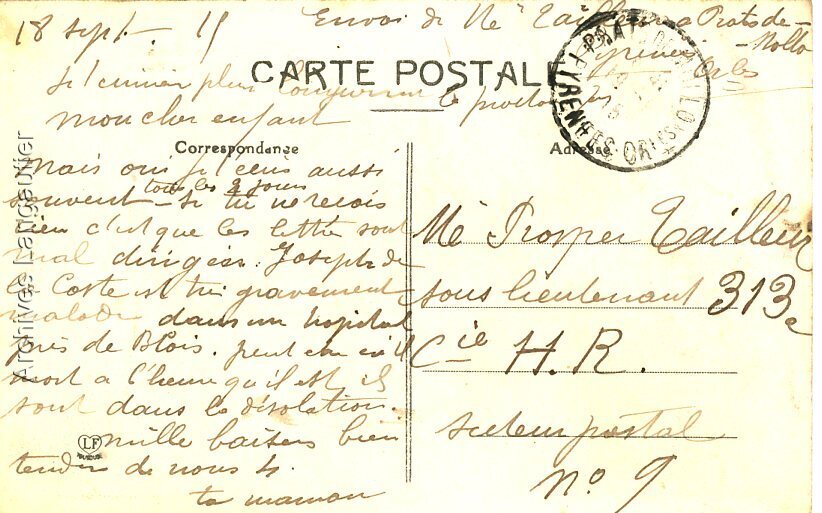 18 sept. 15 Envoi de Me Tailleur a Prats de
Mollo
Pyrénées Or les
CARTE POSTALE
je t'ecrirai plus longuement la prochaine fois
mon cher enfant
Correspondance
Adresse
mais oui je t'écris aussi
tous les 2 jours
souvent - si tu ne reçois
rien c'est que les lettres sont
mal dirigées. Joseph de
la Coste est très gravement
malade dans un hopital
près de Blois. peut etre est il
mort a l'heure qu'il est ils
sont dans la désolation.
mille baisers bien
tendres de nous 4.
ta maman
Me Prosper Tailleur
sous lieutenant 313e
Cie H. R.
secteur postal
no. 9
PRATS DE MOLLO
PYRENEES-ORIES
LF
Archives Langeuflier